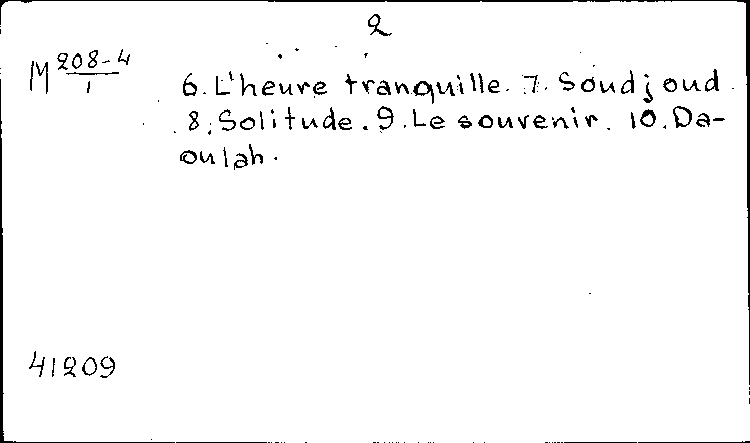 2
M 208-4/1
6. L'heure tranquille. 7. Soudjoud.
8. Solitude. 9. Le souvenir. 10. Da-
oulah.
41209